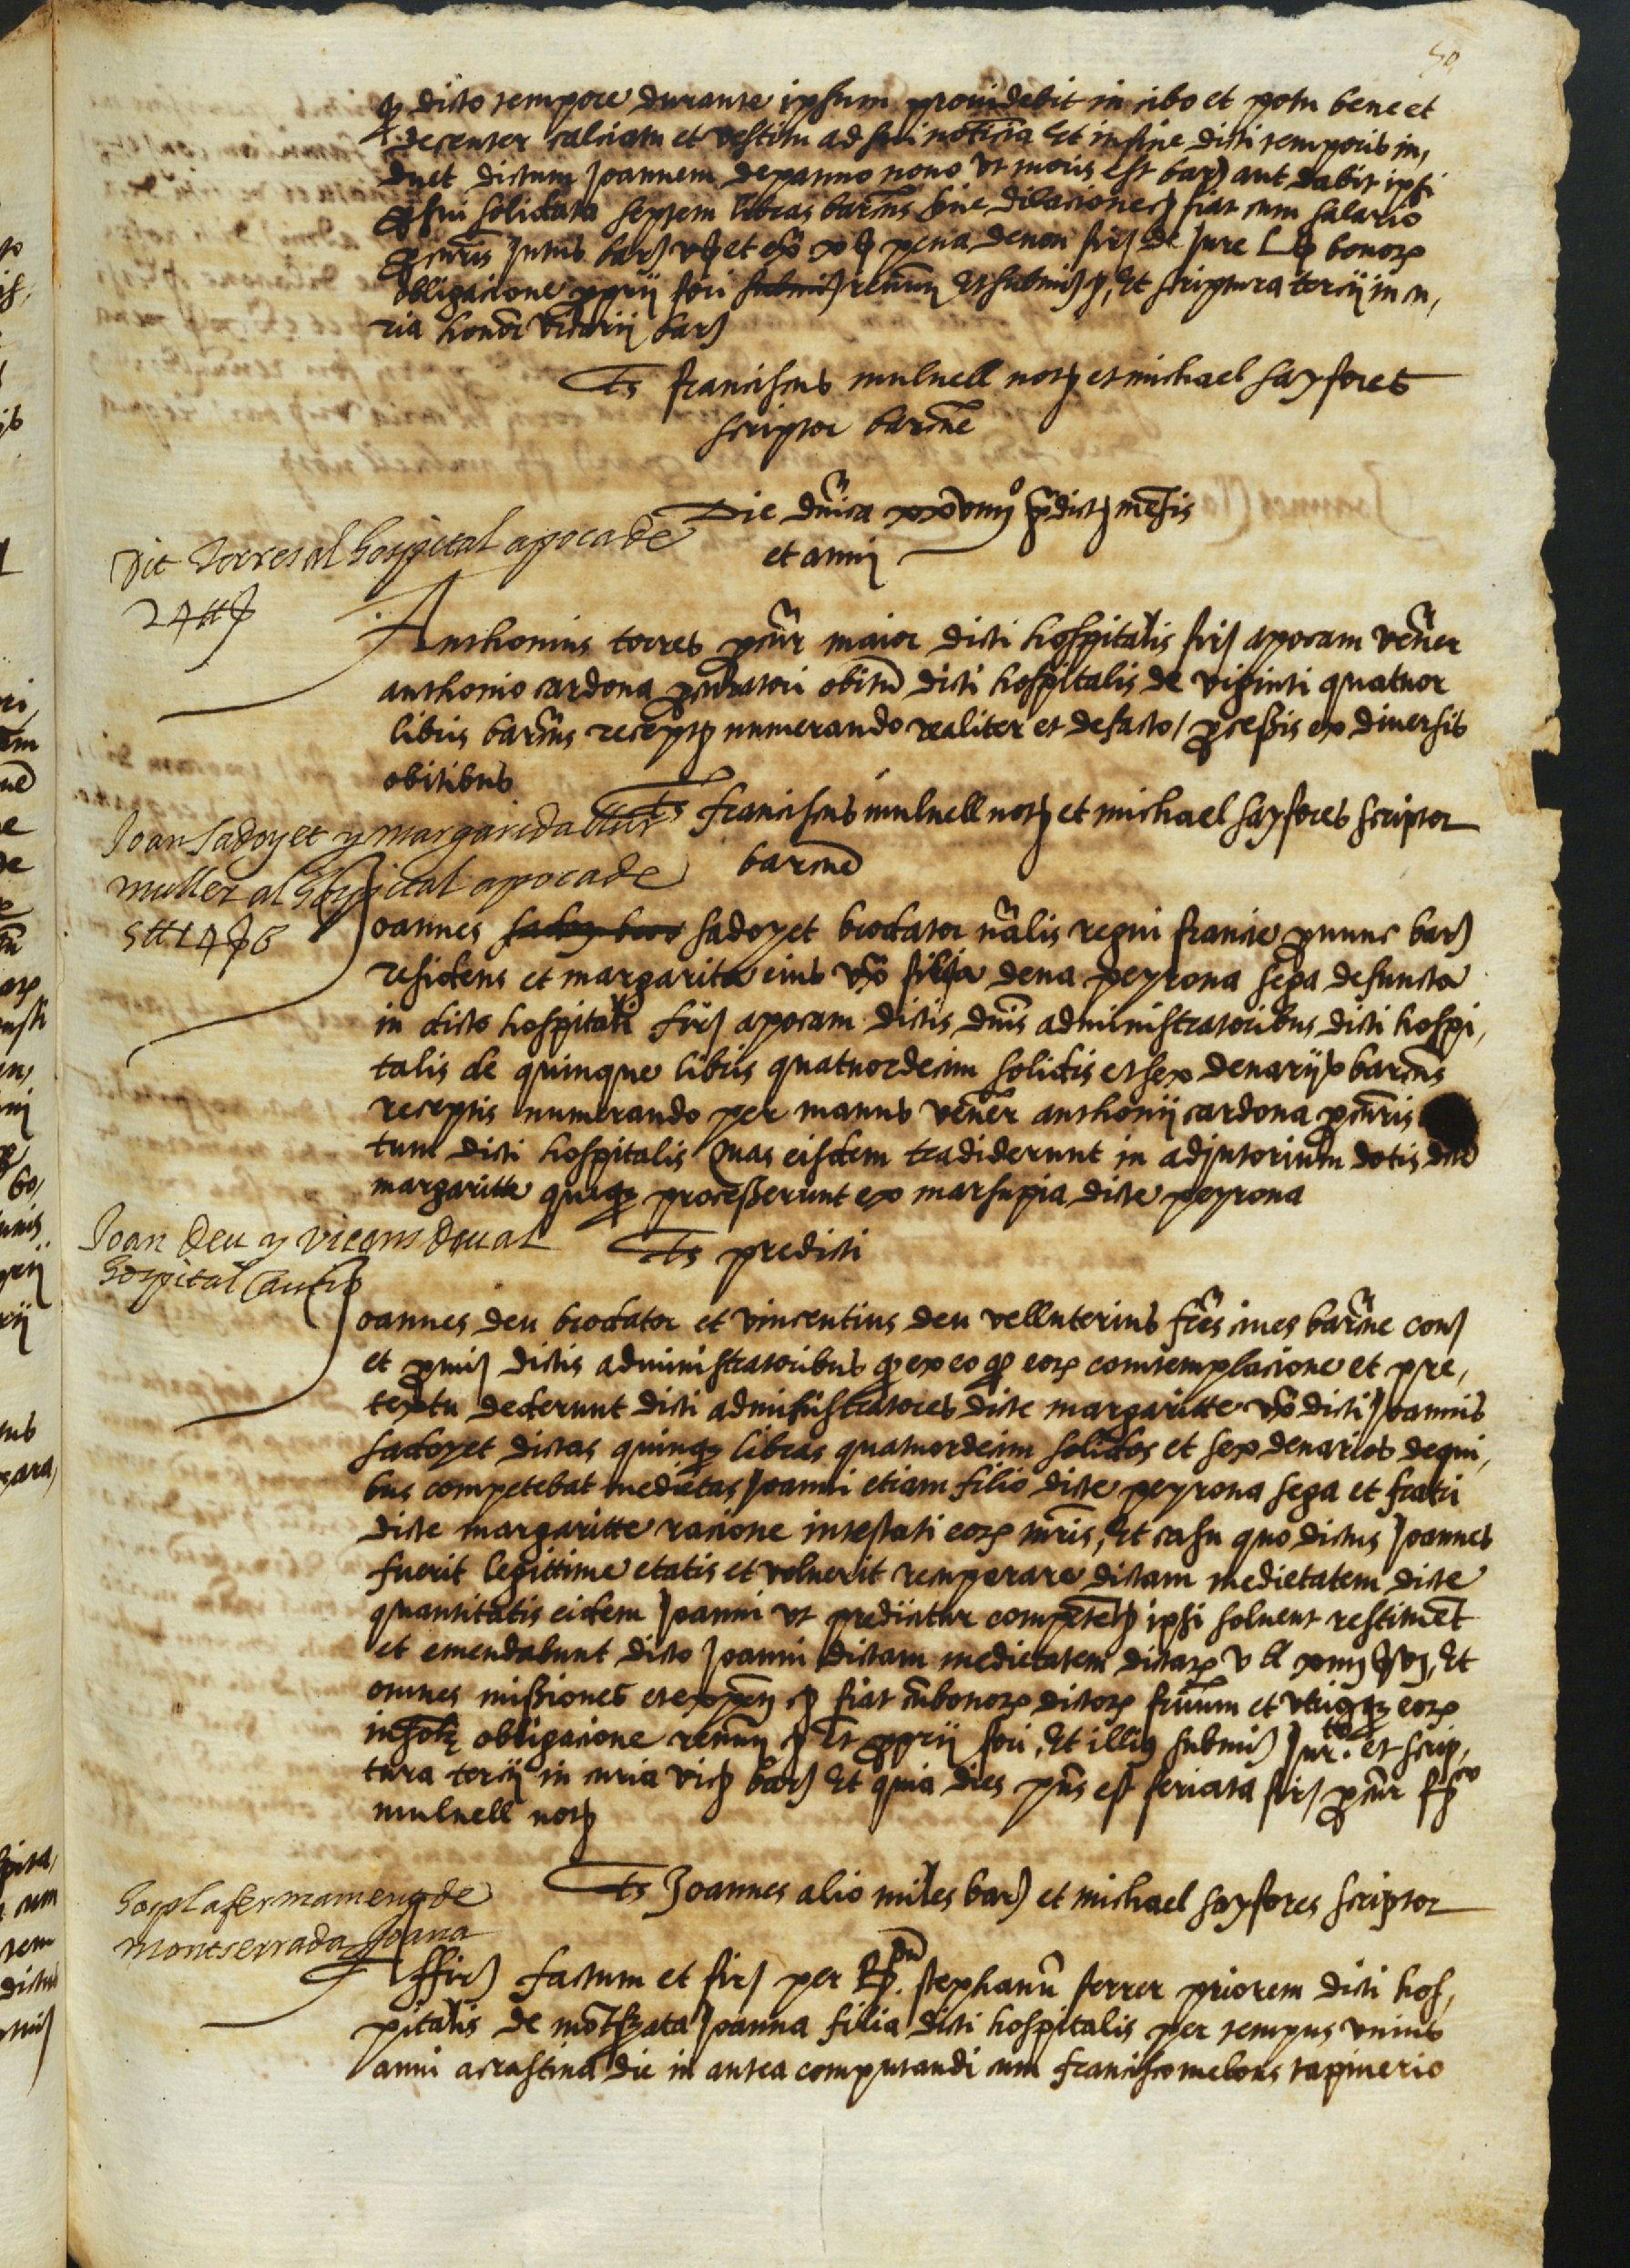 50
q dicto tempore durante ipsum providebit in cibo et potu bene et
decenter calciatu et vestitu ad sui noticia Et in fine dicti temporis in,
duet dictum Joannem de panno novo ut moris est barƷ aut dabit ipsi
p sui solidata septem libras barcñs sine dilacione fiat cum salario
pcuris intus barƷ vs et ex xs pena de non firƷ de jure Ls bonoꝝ
obligacione pprii fori submiƷ renun Et submiƷ, Et scriptura tercii in cu,
ria honor vicarii barƷ
Ts franciscus mulnell not et michael sayfores
scriptor barcne
Die dnica xxviiijº pdict mensis
et anni
Dit Torres al hospital apoca de
24 ℔ s
Anthonius torres pcur maior dicti hospitalis firƷ apocam vener
anthonio cardona pcuratori obituū dicti hospitalis de viginti quatuor
libris barcñs recept numerando realiter et de facto / pcessis ex diversis
obitibus
Ts franciscus mulnell not et michael sayfores scriptor
barcne
Joan Sadoyet y margarida sa
muller al hospital apoca de
5 ℔ 14 s 6
Joannes sadoy bro sadoyet brodator nralis regni francie pnunc barƷ
residens et margarita eius uxo filia dena peyrona sega defuncta
in dicto hospitali firƷ apocam dictis dnis administratoribus dicti hospi,
talis de quinque libris quatuordecim solidis et sex denariis barcñs
receptis numerando per manus vener anthonii cardona pcuris
tum dicti hospitalis Quas eisdem tradiderunt in adjutorium dotis dicte
margaritte queq processerunt ex marsupia dicte peyrona
Ts predicti
Joan Deu y vicens deu al
hospital cautio
Joannes deu brodator et vincentius deu velluterius fres cives barcne conƷ
et pmiƷ dictis administratoribus q ex eo q eoꝝ comtemplacione et pre,
textu dederunt dicti administratores dicte margaritte uxo dicti Joannis
sadoyet dictas quinq libras quatuordecim solidos et sex denarios de qui,
bus competebat medietas Joanni etiam filio dicte peyrona sega et fratri
dicte margaritte racione intestati eoꝝ mris, Et casu quo dictus Joannes
fuerit legittime etatis et voluerit recuperare dictam medietatem dicte
quantitatis eidem Joanni ut predicitur competent ipsi solvent restituent
et emendabunt dicto Joanni dictam medietatem dictaꝝ v ℔ xiiij s vj, Et
omnes missiones et expen fiat cu bonoꝝ dictoꝝ fruum et utriusq eoꝝ
insolꝫ obligacione renun Et pprii fori, Et illius submiƷ Jur.to et scrip,
tura tercii in curia vic barƷ Et quia dies pns est feriata firƷ pcur fco
mulnell not
Ts Joannes alio miles barƷ et michael sayfores scriptor
hospl afermament de
montserrada Joana
AffirƷ factum et firƷ per R.dum stephanu ferrer priorem dicti hos,
pitalis de motserrata Joanna filia dicti hospitalis per tempus unius
anni a crastina die in antea computandi cum francisco melons tapinerio